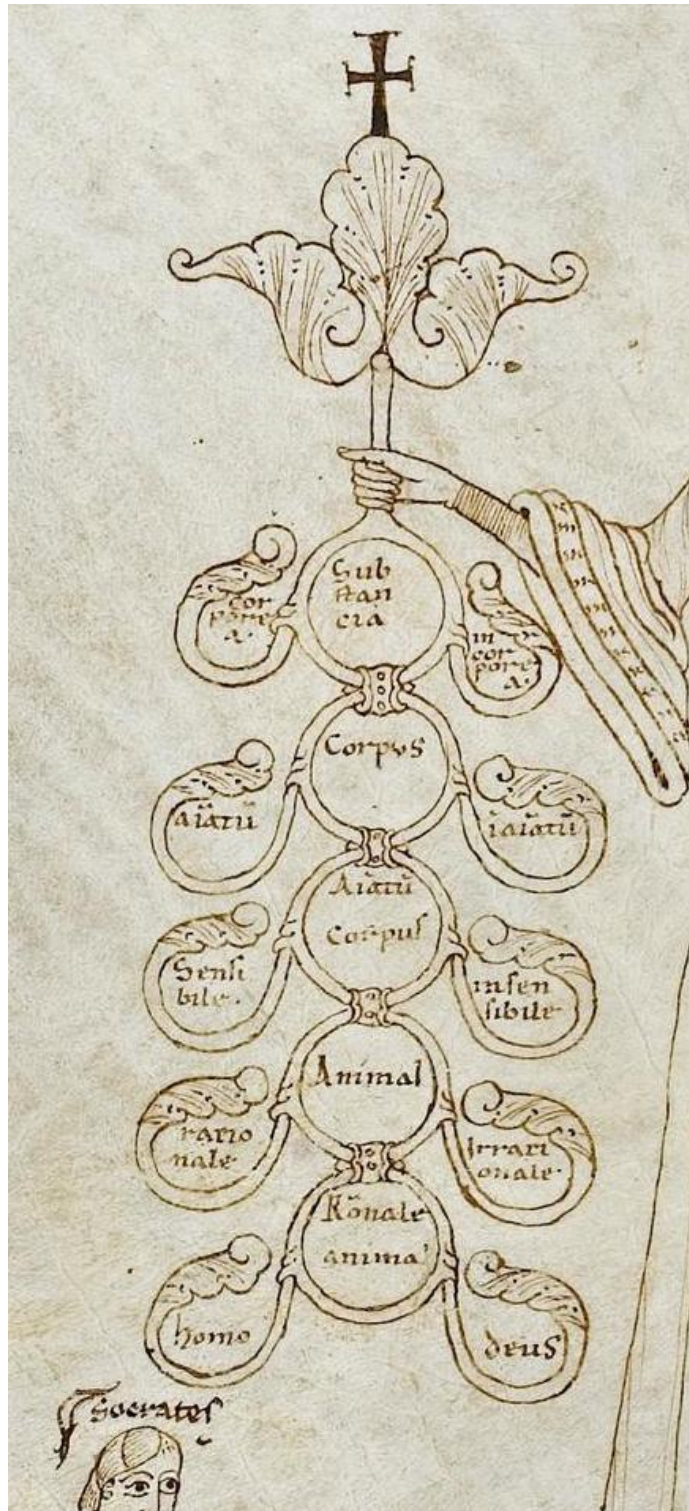 Sub
stan
cia
cor
pore
a.
in
cor
pore
a.
Corpus
aīatū
īaīatū
Aīatū
Corpus
Sensi
bile.
insen
sibile
Animal
racio
nale
Irraci
onale.
Rōnale
animal
homo
deus
Socrates